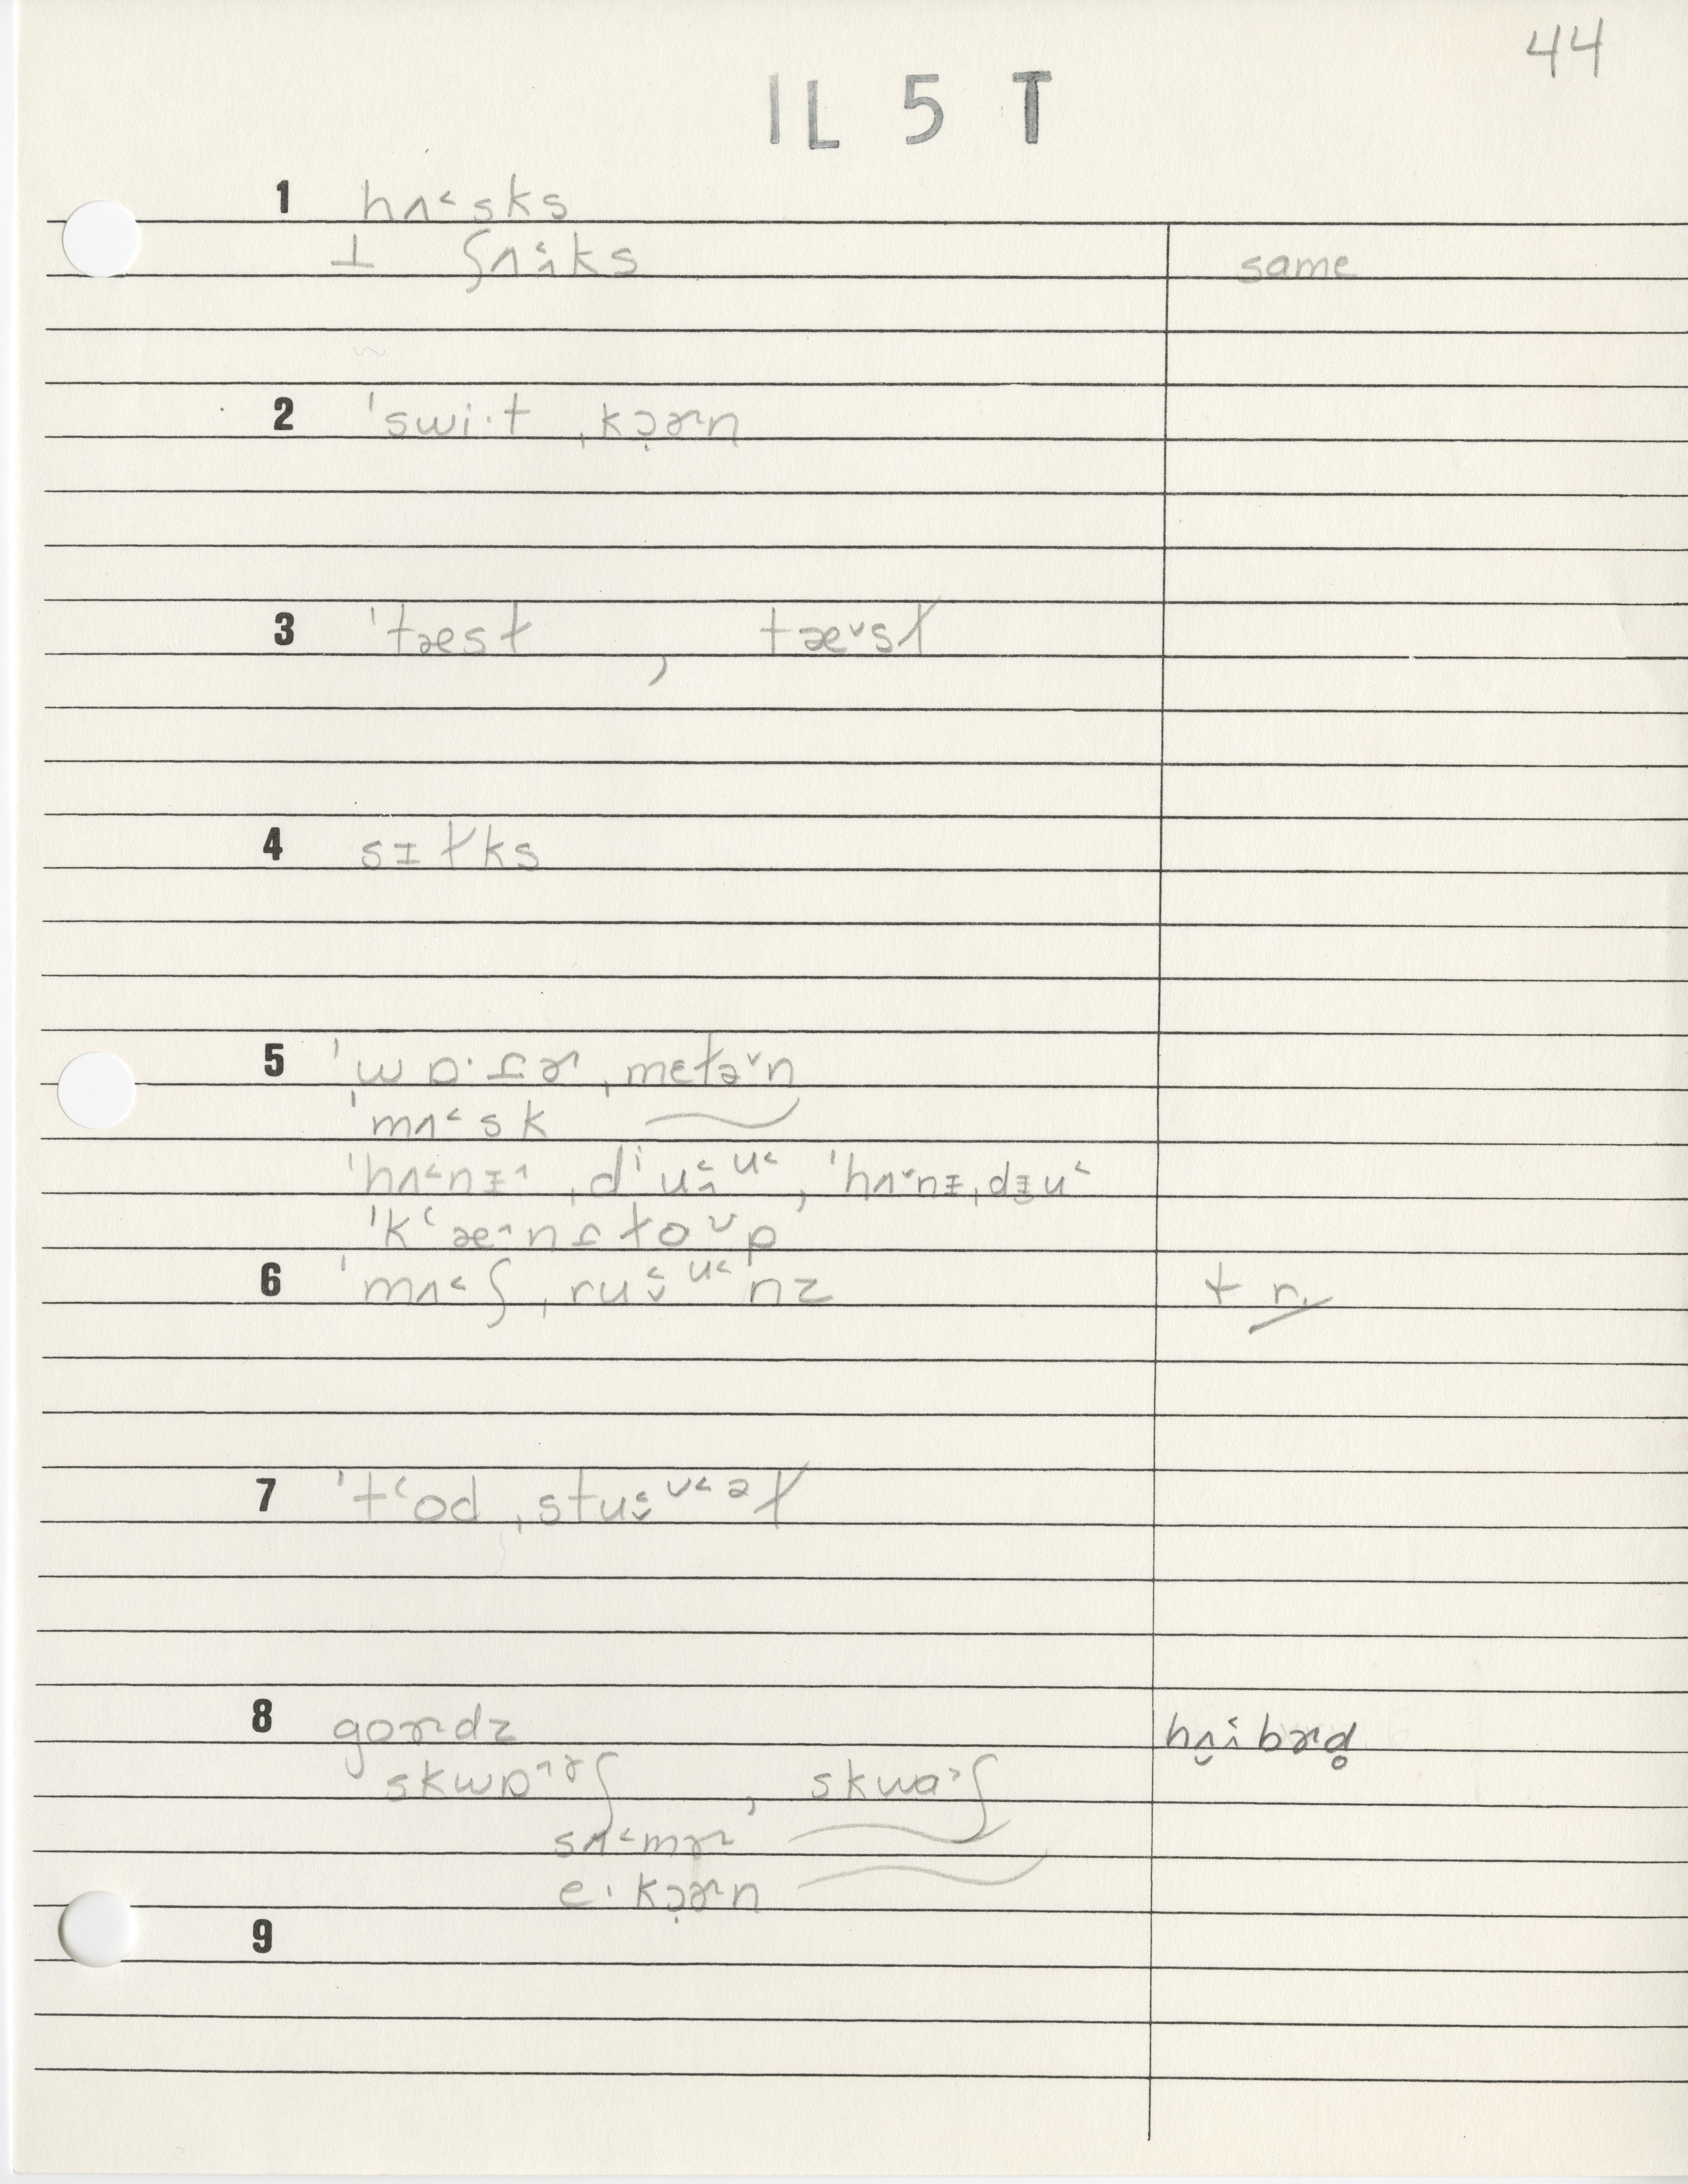 44
IL 5 T
1 hʌ˂sks
⊥ ʃʌ˂̭ks same
2 ˈswi·t ˌkɔ̣ɚn
3 ˈtæsɫ , tæ˅sɫ
4 sɪɫks
5 ˈwɒ·ɾɚ ˌmɛɫə˅n
ˈmʌ˂sk
ˈhʌ˂nɪ˄ ˌdⁱu˂̭ᵘ˂, ˈhʌ˅nɪ ˌdɪu˂
ˈkʻæ˄nɾɫo˅p
6 ˈmʌ˂ʃ ˌru˂̬ᵘ˂nz + r.
7 ˈtʻod ˌstu˂̬ᵛ˂əɫ
8 goɚdz hʌ̬ibɚd̥
skwɒ˄ɚʃ , skwɑ˃ʃ
sʌ˂mɚ
e·kɔ̣ɚn
9